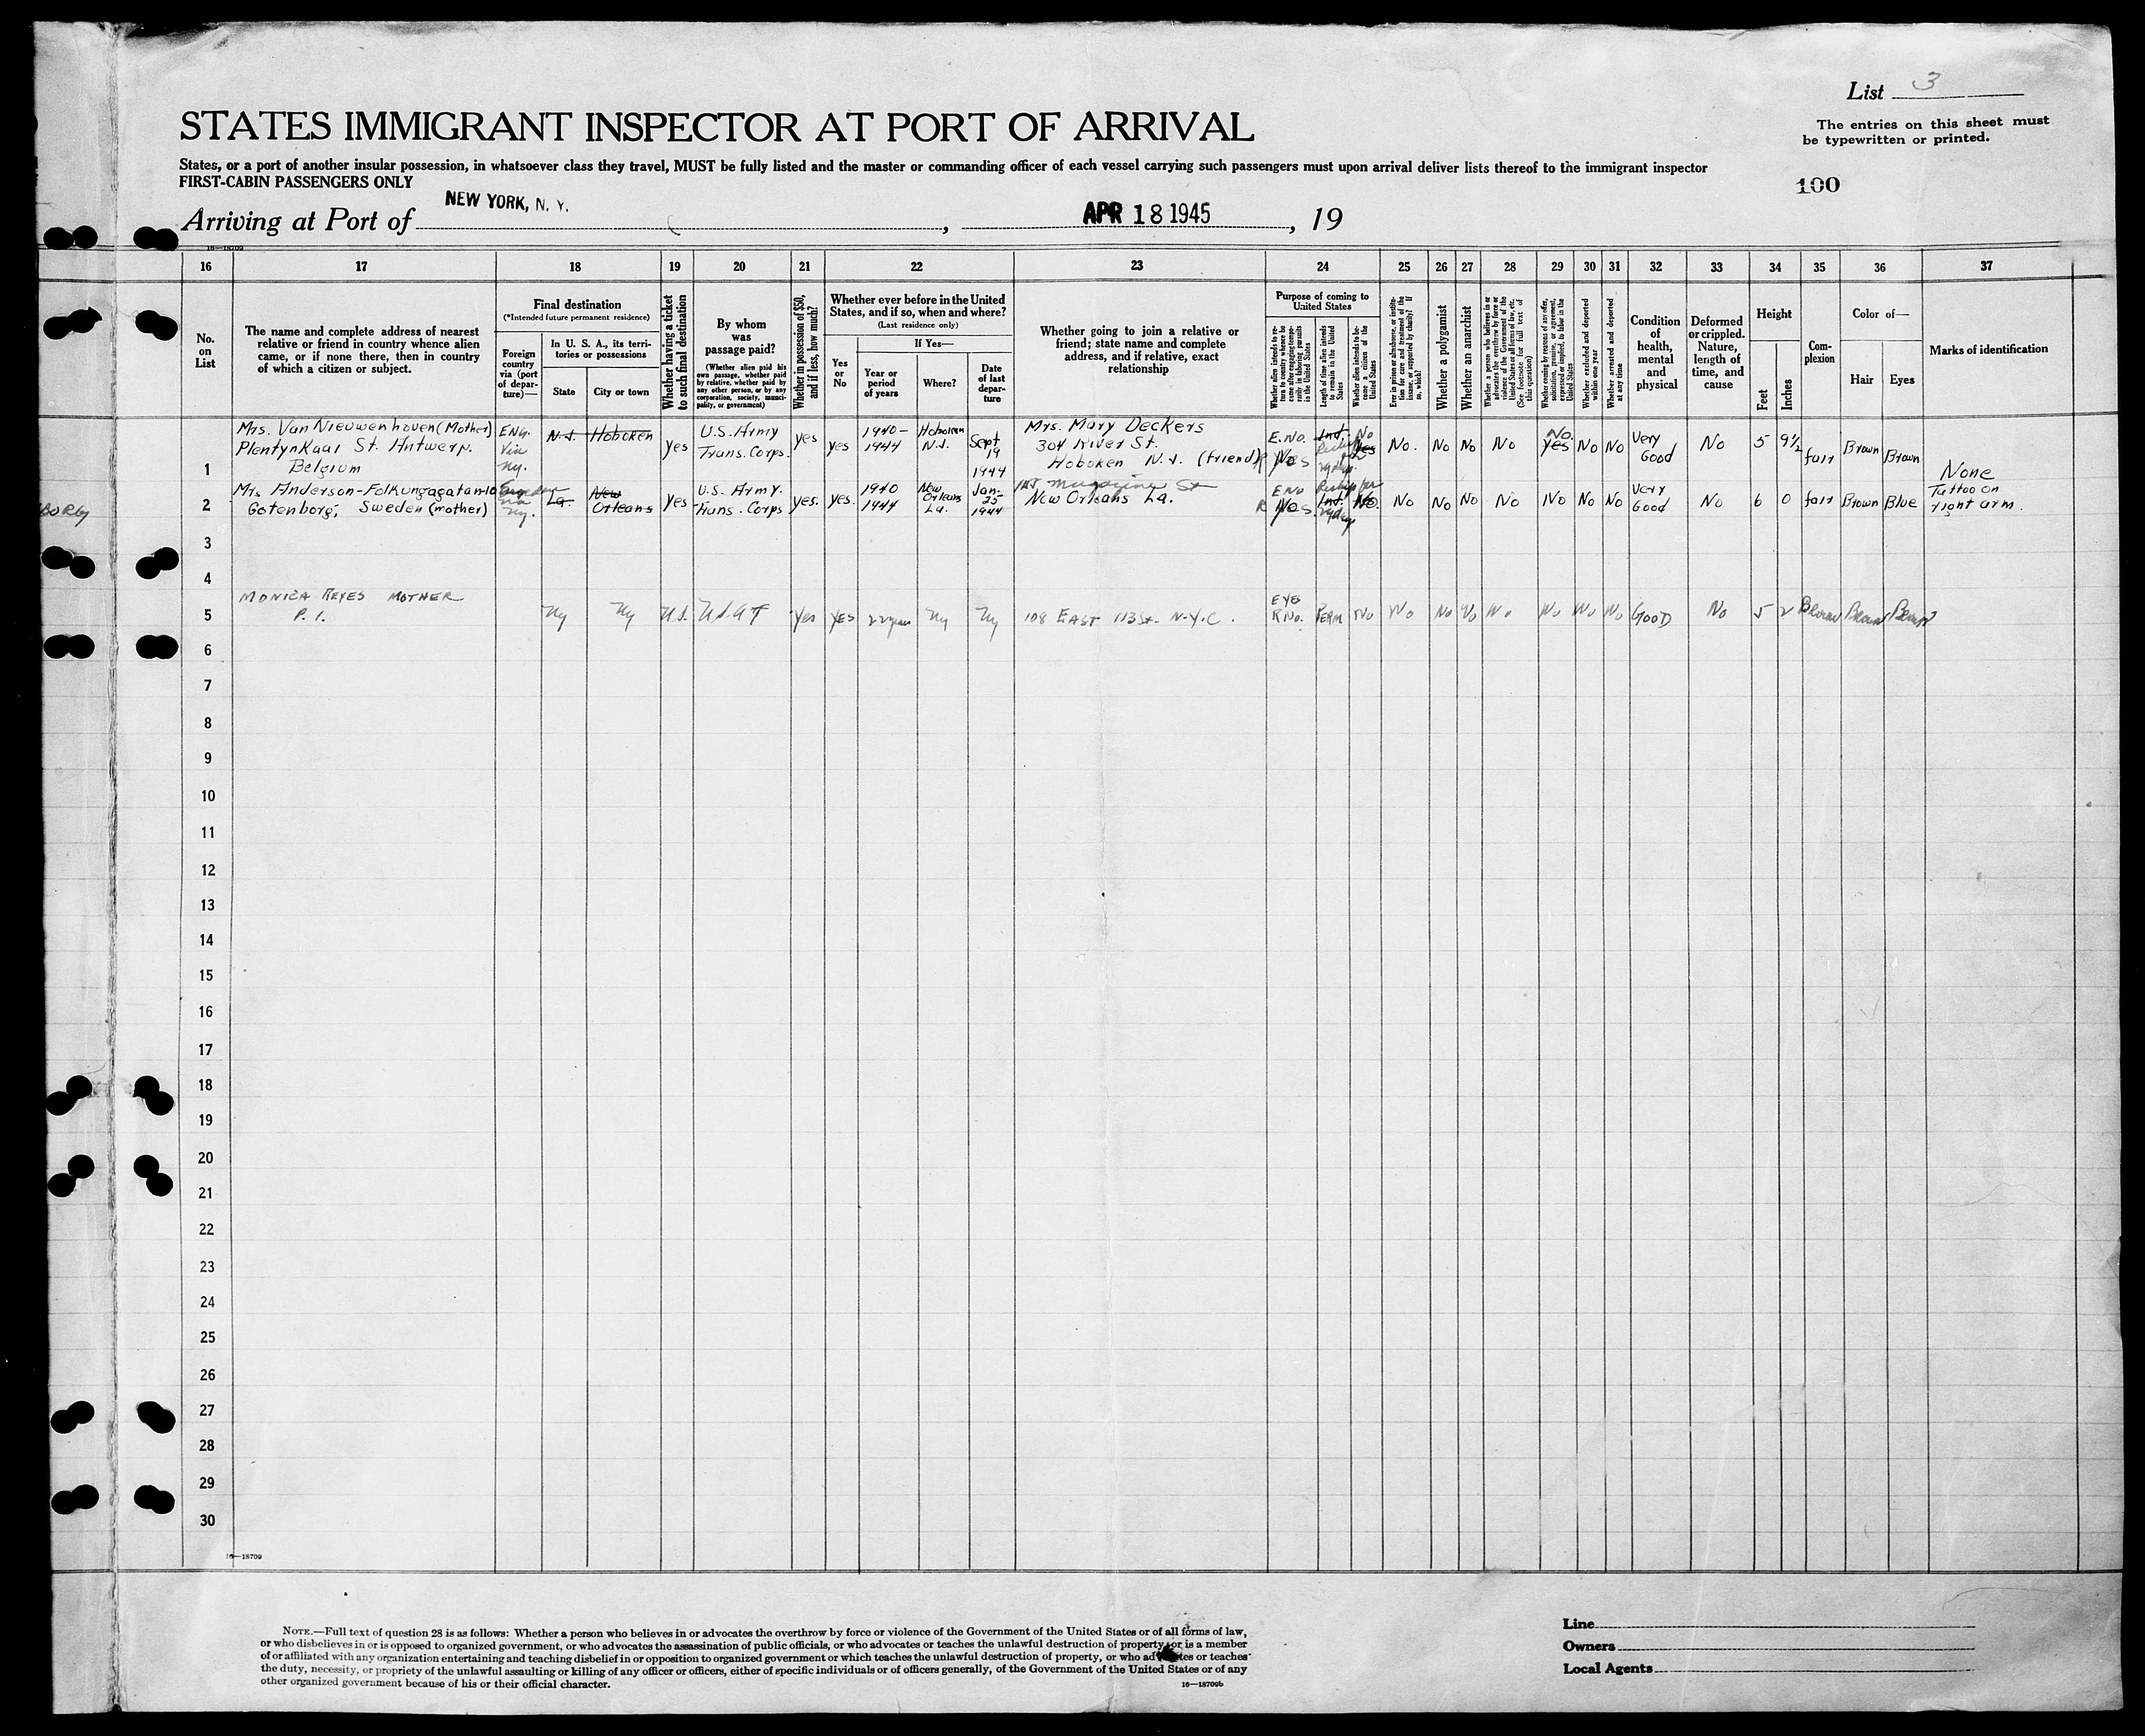 List 3
The entries on this sheet must
be typewritten or printed.
STATES IMMIGRANT INSPECTOR AT PORT OF ARRIVAL
States, or a port of another insular possession, in whatsoever class they travel, MUST be fully listed and the master or commanding officer of each vessel carrying such passengers must upon arrival deliver lists thereof to the immigrant inspector
FIRST-CABIN PASSENGERS ONLY
100
Arriving at Port of NEW YORK, N. Y. , APR 18 1945 , 19
16—18709
16 17 18 19 20 21 22 23 24 25 26 27 28 29 30 31 32 33 34 35 36 37
No. on List
The name and complete address of nearest
relative or friend in country whence alien
came, or if none there, then in country
of which a citizen or subject.
Final destination
(*Intended future permanent residence)
Foreign country via (port of departure)—
In U. S. A., its territories or possessions
State
City or town
Whether having a ticket to such final destination
By whom was passage paid?
(Whether alien paid his own passage, whether paid by relative, whether paid by any other person, or by any corporation, society, municipality, or government)
Whether in possession of $50, and if less, how much?
Whether ever before in the United
States, and if so, when and where?
(Last residence only)
Yes or No
If Yes—
Year or period of years
Where?
Date of last departure
Whether going to join a relative or
friend; state name and complete
address, and if relative, exact
relationship
Purpose of coming to
United States
Whether alien intends to return to country whence he came after engaging temporarily in laboring pursuits in the United States
Length of time alien intends to remain in the United States
Whether alien intends to become a citizen of the United States
Ever in prison or almshouse, or institution for care and treatment of the insane, or supported by charity? If so, which?
Whether a polygamist
Whether an anarchist
Whether a person who believes in or advocates the overthrow by force or violence of the Government of the United States or all forms of law, etc. (See footnote for full text of this question)
Whether coming by reason of any offer, solicitation, promise, or agreement, expressed or implied, to labor in the United States
Whether excluded and deported within one year
Whether arrested and deported at any time
Condition of health, mental and physical
Deformed or crippled. Nature, length of time, and cause
Height
Feet
Inches
Complexion
Color of—
Hair
Eyes
Marks of identification
1 Mrs. Van Nieuwenhoven (Mother)
Plentynkaai St. Antwerp.
Belgium
ENG. Via Ny. N.J. Hoboken yes U.S. Army Trans. Corps. yes yes 1940-1944 Hoboken N.J. Sept 19 1944
Mrs. Mary Deckers
304 River St.
Hoboken N.J. (friend)
E.No. R Yes Ind. No Yes No. No No No No. Yes No No Very Good No 5 9½ fair Brown Brown None
2 Mrs. Anderson-Folkungagatan-10
Gotenborg, Sweden (mother)
Ny. La. New Orleans yes U.S. Army. Trans. Corps yes. yes. 1940 1944 New Orleans La. Jan- 25 1944
Magazine St
New Orleans La.
E No R Yes. Reship for Ind. No. No No No No No No No Very Good No 6 0 fair Brown Blue Tattoo on right arm.
3
4
5 MONICA REYES MOTHER
P. I.
Ny Ny U.S. USAT yes yes 22 years Ny Ny 108 EAST 113 St. N.Y.C. E YES R No. PERM No No No No No No No No GOOD No 5 2 Brown Brown Brown
6
7
8
9
10
11
12
13
14
15
16
17
18
19
20
21
22
23
24
25
26
27
28
29
30
16—18709
NOTE.—Full text of question 28 is as follows: Whether a person who believes in or advocates the overthrow by force or violence of the Government of the United States or of all forms of law,
or who disbelieves in or is opposed to organized government, or who advocates the assassination of public officials, or who advocates or teaches the unlawful destruction of property, or is a member
of or affiliated with any organization entertaining and teaching disbelief in or opposition to organized government or which teaches the unlawful destruction of property, or who advocates or teaches
the duty, necessity, or propriety of the unlawful assaulting or killing of any officer or officers, either of specific individuals or of officers generally, of the Government of the United States or of any
other organized government because of his or their official character.
16—18709b
Line
Owners
Local Agents